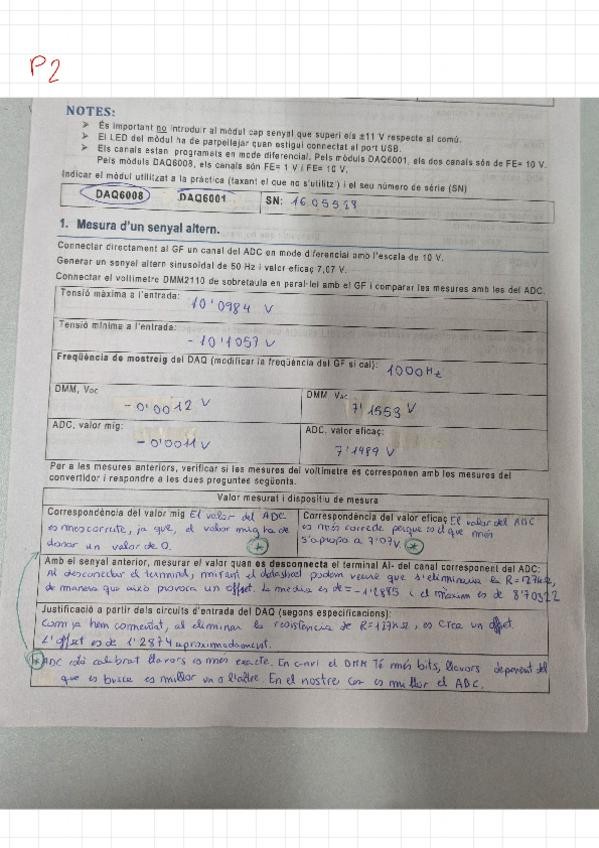 P2
NOTES:
➤ És important no introduir al mòdul cap senyal que superi els ±11 V respecte al comú.
➤ El LED del mòdul ha de parpellejar quan estigui connectat al port USB.
➤ Els canals estan programats en mode diferencial. Pels mòduls DAQ6001, els dos canals són de FE= 10 V.
Pels mòduls DAQ6008, els canals són FE= 1 V i FE= 10 V.
Indicar el mòdul utilitzat a la pràctica (taxant el que no s'utilitz') i el seu número de sèrie (SN)
DAQ6008 DAQ6001 SN: 1605529
1. Mesura d'un senyal altern.
Connectar directament al GF un canal del ADC en mode diferencial amb l'escala de 10 V.
Generar un senyal altern sinusoïdal de 50 Hz i valor eficaç 7,07 V.
Connectar el voltímetre DMM2110 de sobretaula en paral·lel amb el GF i comparar les mesures amb les del ADC.
Tensió màxima a l'entrada:
10'0984 V
Tensió mínima a l'entrada:
-10'1057 V
Freqüència de mostreig del DAQ (modificar la freqüència del GF si cal): 1000Hz
DMM, Vdc DMM Vac
-0'0012 V 7'1553 V
ADC, valor mig: ADC, valor eficaç:
-0'0011 V 7'1489 V
Per a les mesures anteriors, verificar si les mesures del voltímetre es corresponen amb les mesures del
convertidor i respondre a les dues preguntes següents.
Valor mesurat i dispositiu de mesura
Correspondència del valor mig El valor del ADC
es mes correcte, ja que, el valor mig ha de
donar un valor de 0.
Correspondència del valor eficaç El valor del ADC
es més correcte perque es el que més
s'apropa a 7'07V.
Amb el senyal anterior, mesurar el valor quan es desconnecta el terminal AI- del canal corresponent del ADC:
Al desconectar el terminal, mirant el datasheet podem veure que s'elimina la R=127kΩ,
de manera que això provoca un offset. La media es de = -1'2885 i el màxim es de 8'70322
Justificació a partir dels circuits d'entrada del DAQ (segons especificacions):
Com ja hem comentat, al eliminar la resistencia de R=127kΩ, es crea un offset.
L'offset es de 1'2874 aproximadament.
ADC està calibrat llavors es mes exacte. En canvi el DMM Té més bits, llavors depenent del
que es busca es millor un o l'altre. En el nostre cas es millor el ADC.